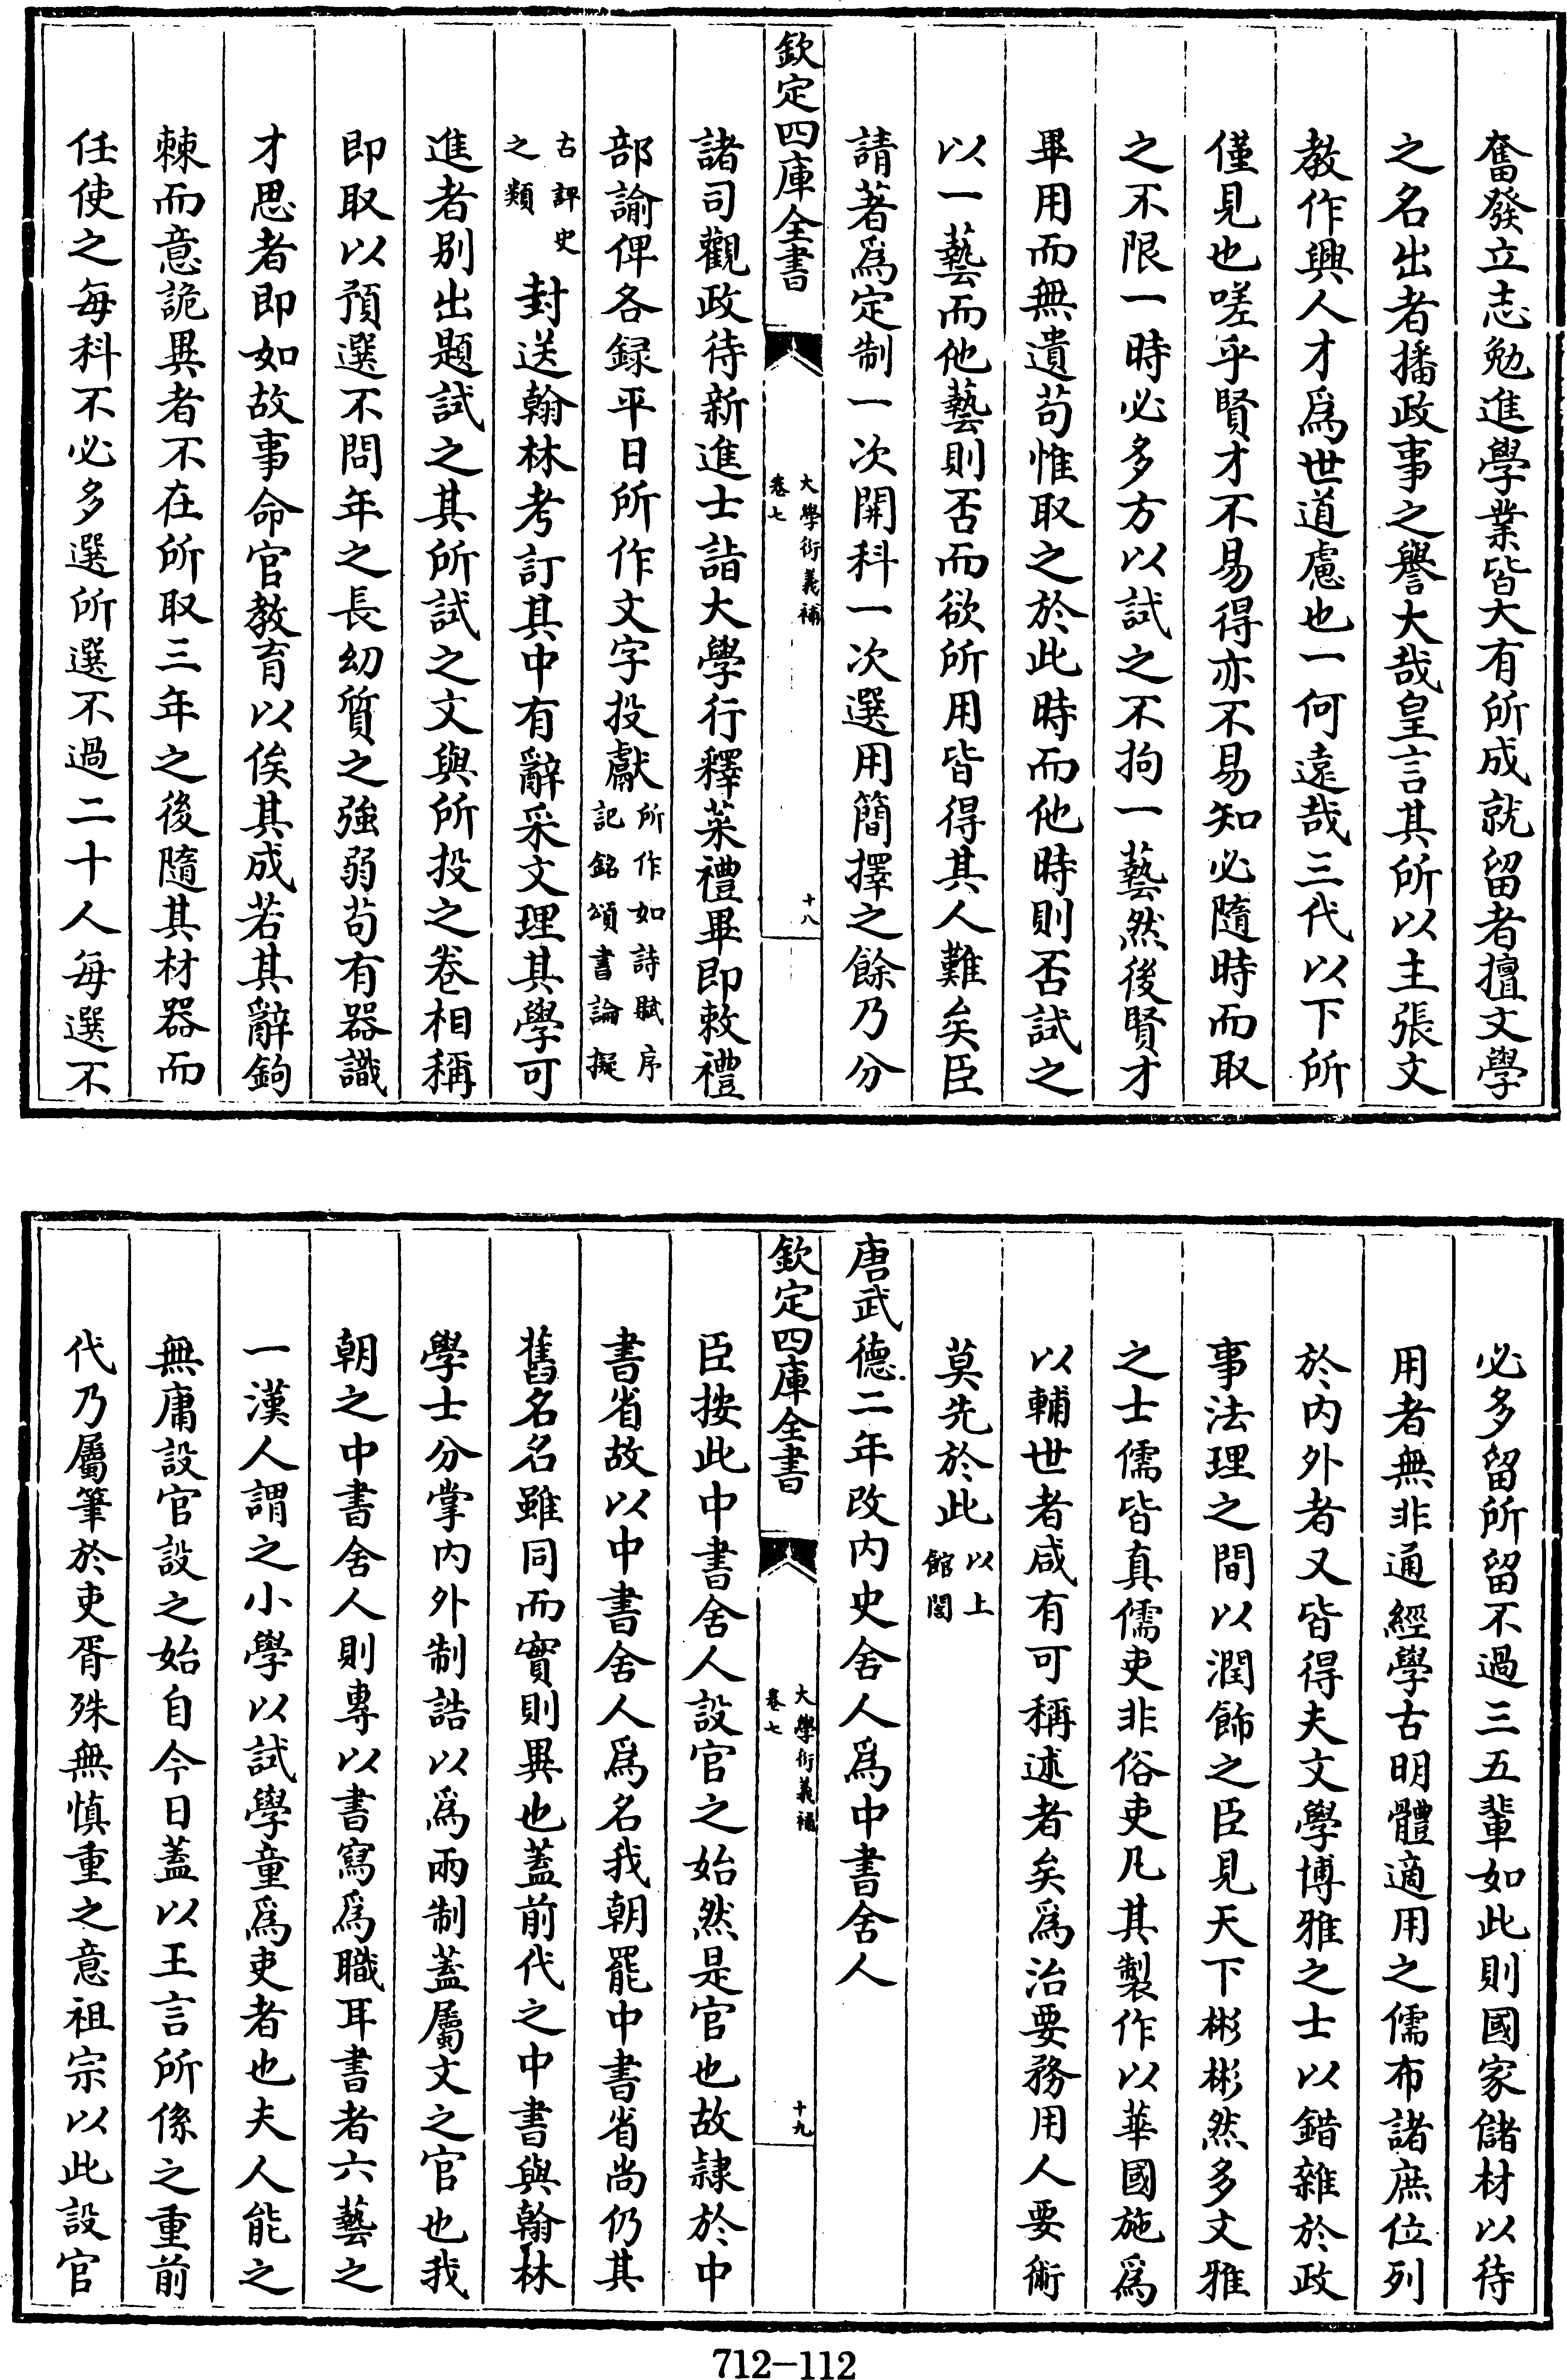 奮發立志勉進學業皆大有所成就留者擅文學
之名出者播政事之譽大哉皇言其所以主張文
教作興人才爲世道慮也一何遠哉三代以下所
僅見也嗟乎賢才不易得亦不易知必隨時而取
之不限一時必多方以試之不拘一藝然後賢才
畢用而無遺苟惟取之於此時而他時則否試之
以一藝而他藝則否而欲所用皆得其人難矣臣
請著爲定制一次開科一次選用簡擇之餘乃分
欽定四庫全書
大學衍義補
卷七
十八
諸司觀政待新進士詣大學行釋菜禮畢即敕禮
部諭俾各録平日所作文字投獻所作如詩賦序記銘頌書論擬
古評史之類封送翰林考訂其中有辭采文理其學可
進者别出題試之其所試之文與所投之卷相稱
即取以預選不問年之長幼質之強弱苟有器識
才思者即如故事命官教育以俟其成若其辭鉤
棘而意詭異者不在所取三年之後隨其材器而
任使之每科不必多選所選不過二十人每選不
必多留所留不過三五輩如此則國家儲材以待
用者無非通經學古明體適用之儒布諸庶位列
於内外者又皆得夫文學博雅之士以錯雜於政
事法理之間以潤飾之臣見天下彬彬然多文雅
之士儒皆真儒吏非俗吏凡其製作以華國施爲
以輔世者咸有可稱述者矣爲治要務用人要術
莫先於此以上館閣
唐武德二年改内史舍人爲中書舍人
欽定四庫全書
大學衍義補
卷七
十九
臣按此中書舍人設官之始然是官也故隷於中
書省故以中書舍人爲名我朝罷中書省尚仍其
舊名名雖同而實則異也蓋前代之中書與翰林
學士分掌内外制誥以爲兩制蓋屬文之官也我
朝之中書舍人則專以書寫爲職耳書者六藝之
一漢人謂之小學以試學童爲吏者也夫人能之
無庸設官設之始自今日蓋以王言所係之重前
代乃屬筆於吏胥殊無慎重之意祖宗以此設官
712-112